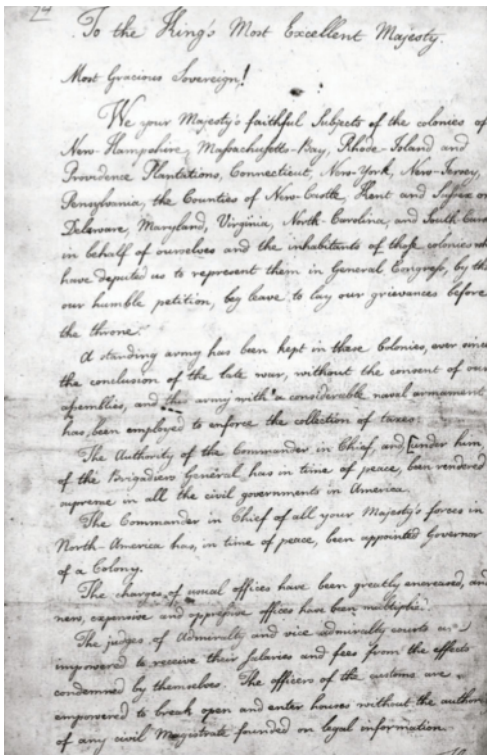 74
To the King's Most Excellent Majesty.
Most Gracious Sovereign!
We your Majesty's faithful Subjects of the colonies of
New-Hampshire, Massachusetts-Bay, Rhode-Island and
Providence Plantations, Connecticut, New-York, New-Jersey,
Pennsylvania, the Counties of New-Castle, Kent and Sussex on
Delaware, Maryland, Virginia, North-Carolina, and South Caro
in behalf of ourselves and the inhabitants of those colonies who
have deputed us to represent them in General Congress, by this
our humble petition, beg leave to lay our grievances before
the throne.
A standing army has been kept in these Colonies, ever since
the conclusion of the late war, without the consent of our
assemblies, and this army with a considerable naval armament
has been employed to enforce the collection of taxes.
The Authority of the Commander in Chief, and [under him,
of the Brigadiers General has in time of peace, been rendered
supreme in all the civil governments in America.
The Commander in Chief of all your Majesty's forces in
North-America has, in time of peace, been appointed Governor
of a Colony.
The charges of usual offices have been greatly encreased, and
new, expensive and oppressive offices have been multiplied.
The judges of Admiralty and vice admiralty courts are
impowered to receive their salaries and fees from the effects
condemned by themselves. The officers of the customs are
empowered to break open and enter houses without the authori
of any civil Magistrate founded on legal information.